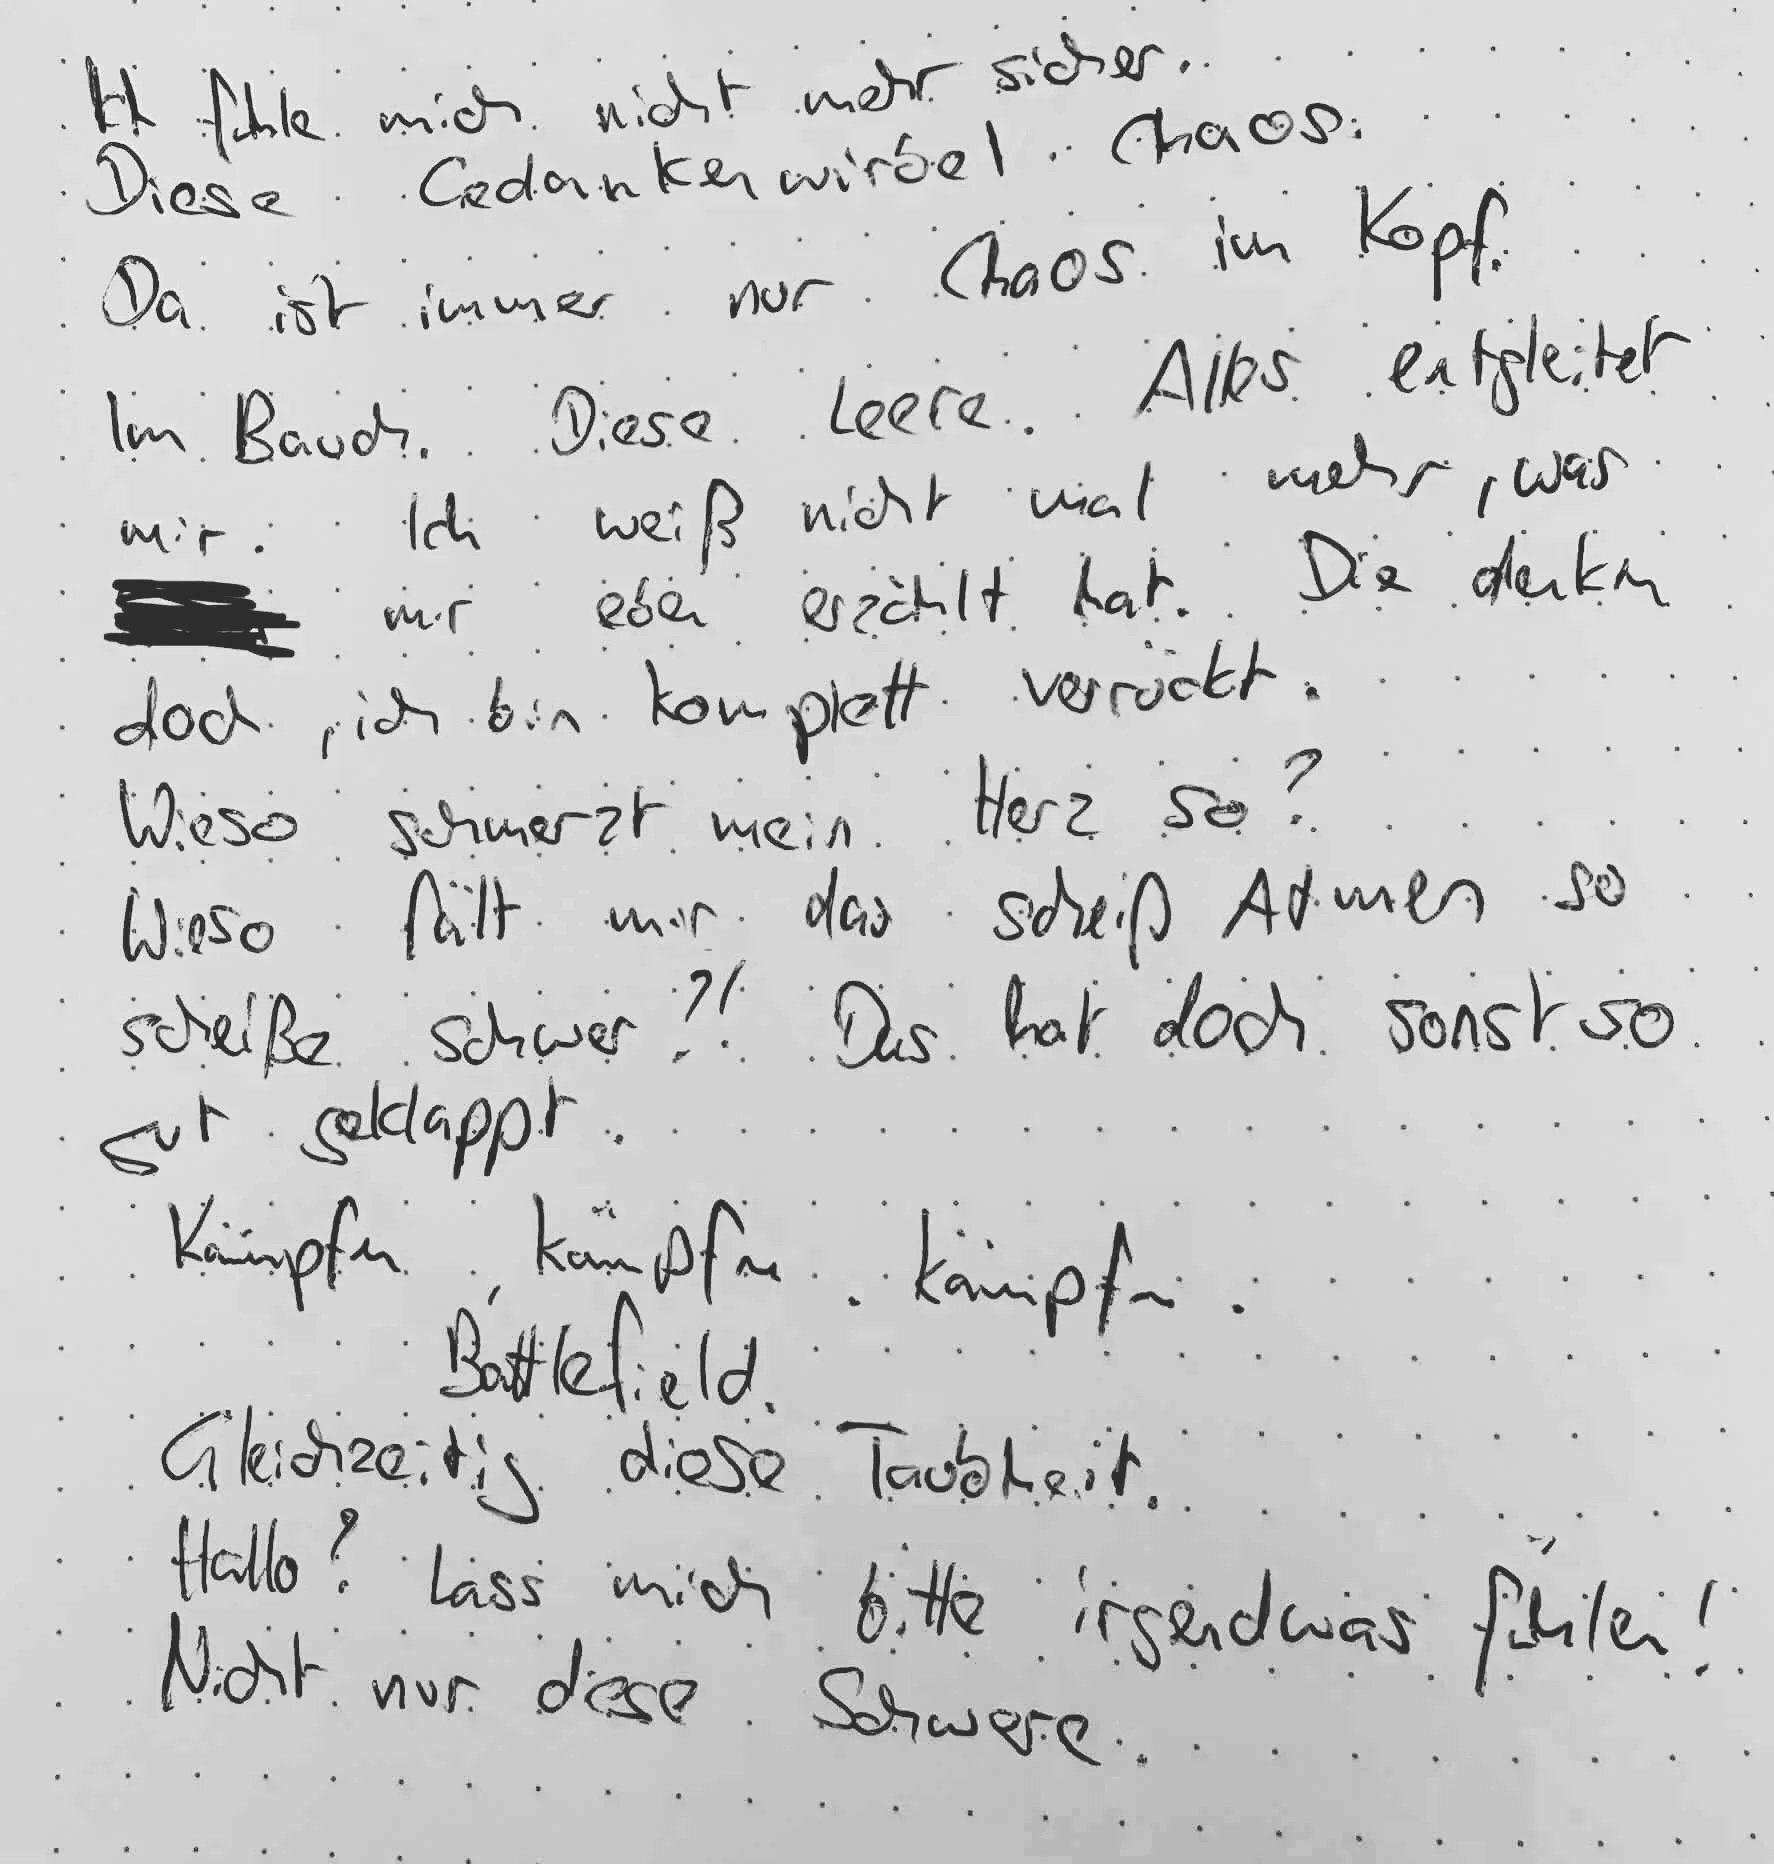 Ich fühle mich nicht mehr sicher.
Diese Gedankenwirbel. Chaos.
Da ist immer nur Chaos im Kopf.
Im Bauch. Diese Leere. Alles entgleitet
mir. Ich weiß nicht mal mehr, was
mir eben erzählt hat. Die denken
doch, ich bin komplett verrückt.
Wieso schmerzt mein Herz so?
Wieso fällt mir das scheiß Atmen so
scheiße schwer?! Das hat doch sonst so
gut geklappt.
Kämpfen, kämpfen. kämpfen.
Battlefield.
Gleichzeitig diese Taubheit.
Hallo? Lass mich bitte irgendwas fühlen!
Nicht nur diese Schwere.